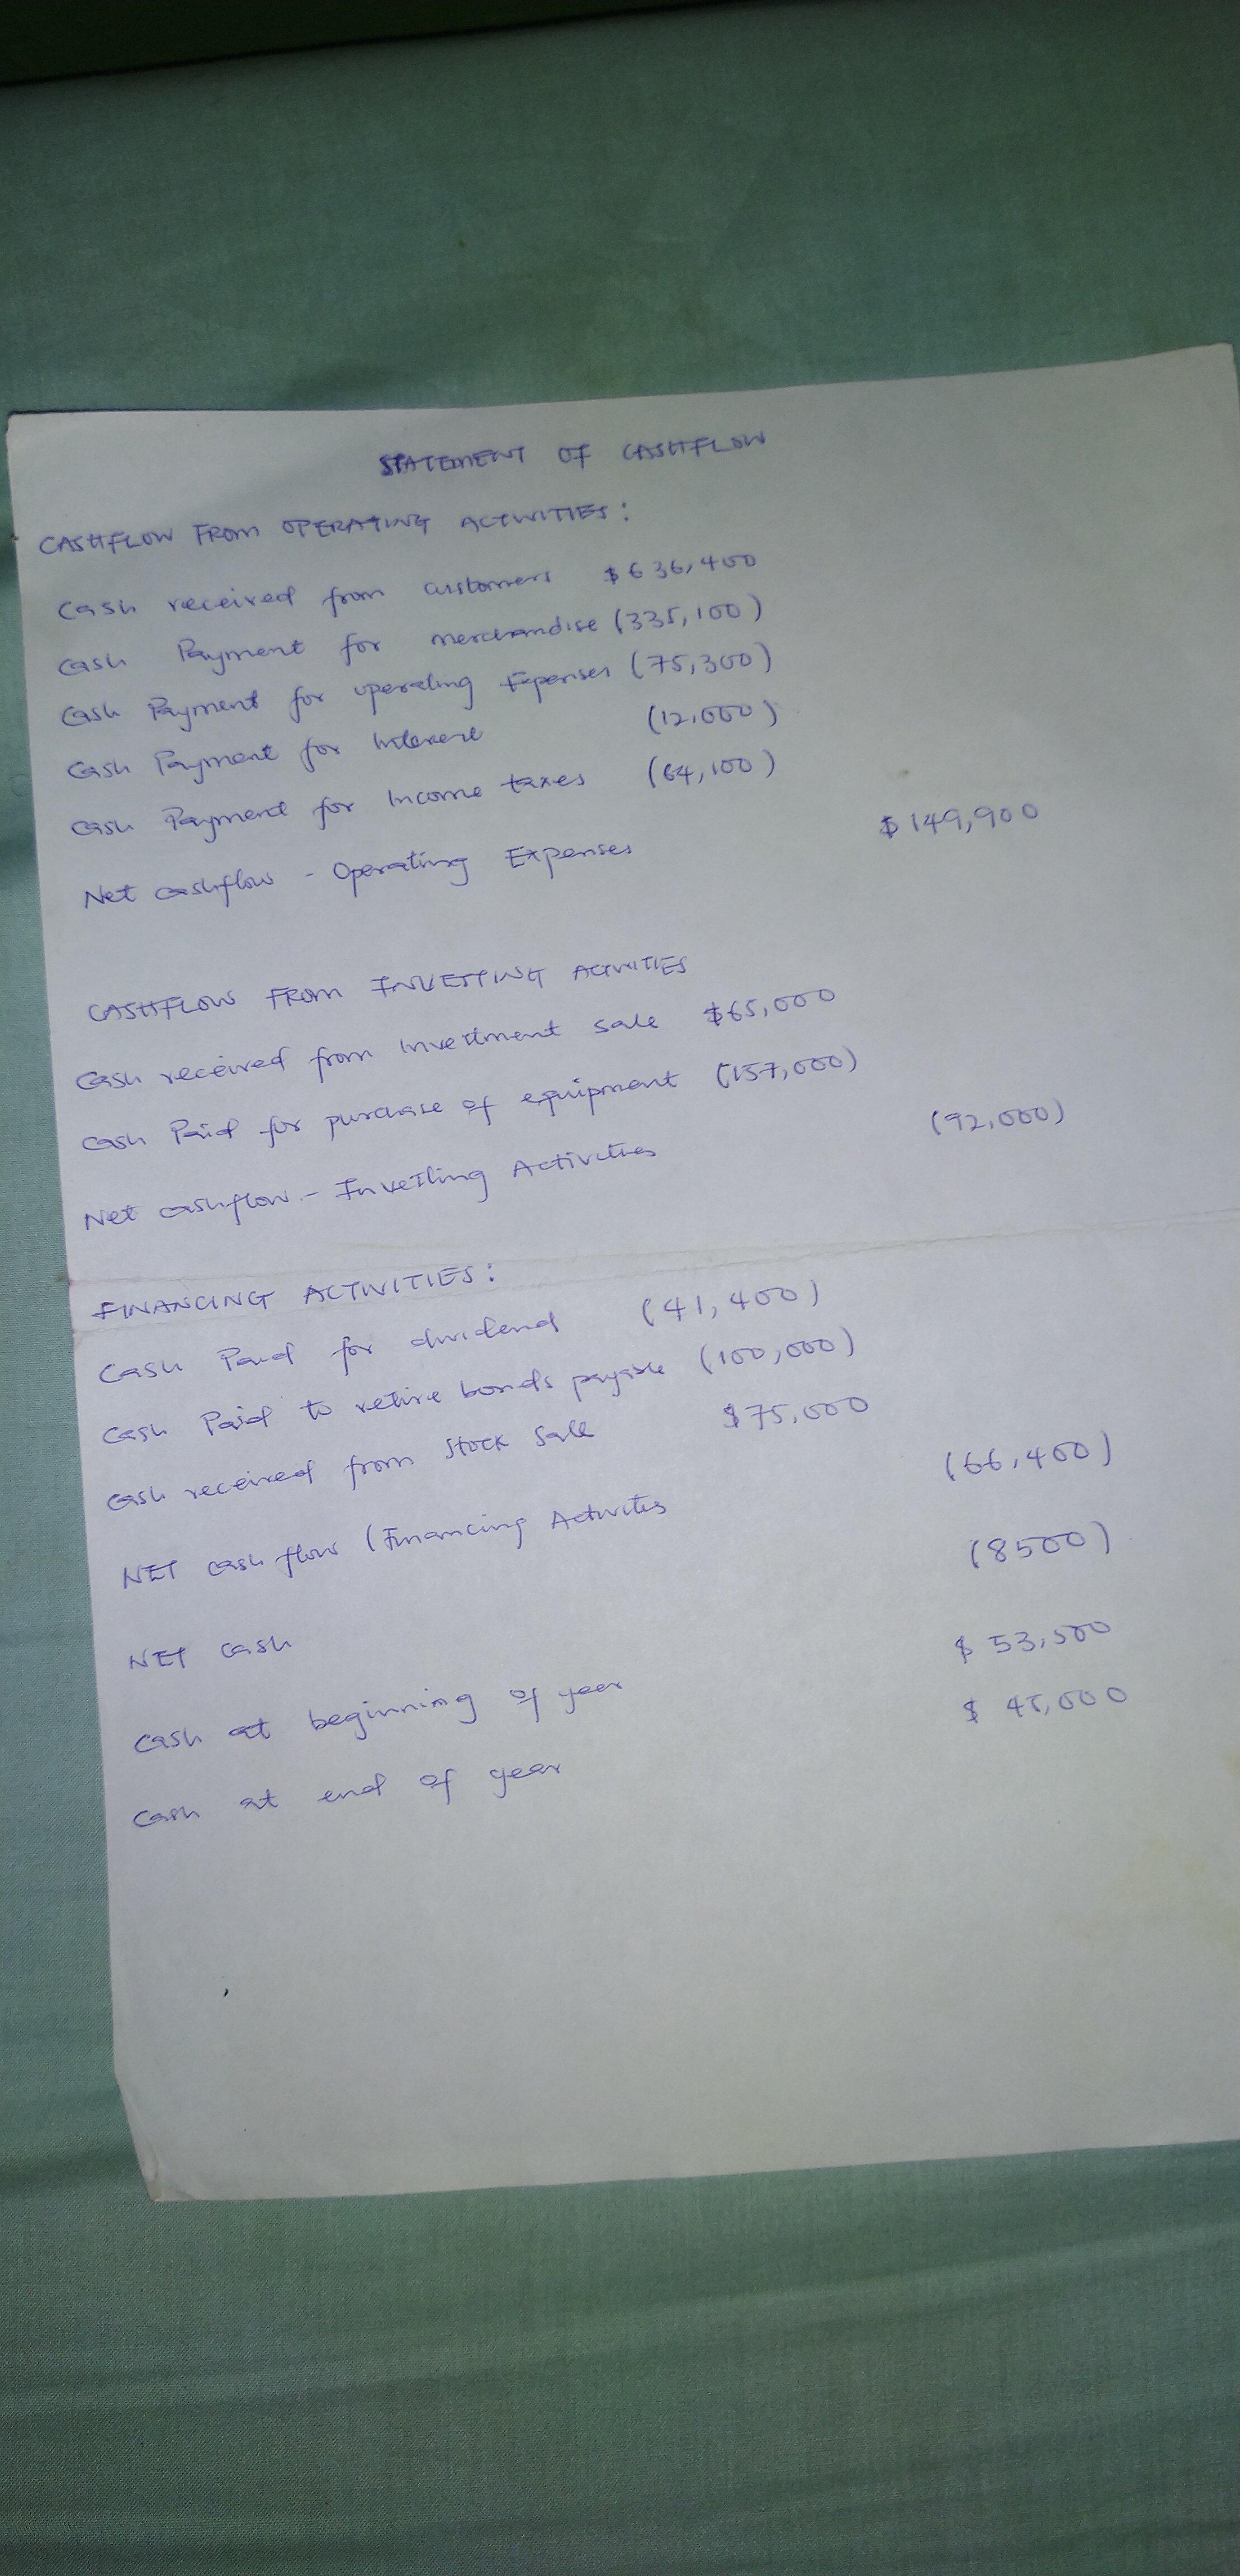 STATEMENT OF CASHFLOW
CASHFLOW FROM OPERATING ACTIVITIES:
Cash received from customers $636,400
Cash Payment for merchandise (335,100)
Cash Payment for operating Expenses (75,300)
Cash Payment for Interest (12,000)
Cash Payment for Income taxes (64,100)
Net cashflow - Operating Expenses $149,900
CASHFLOW FROM INVESTING ACTIVITIES
Cash received from Investment sale $65,000
Cash Paid for purchase of equipment (157,000)
Net cashflow - Investing Activities (92,000)
FINANCING ACTIVITIES:
Cash Paid for dividend (41,400)
Cash Paid to retire bonds payable (100,000)
Cash received from Stock Sale $75,000
NET cash flow (Financing Activities (66,400)
NET cash (8500)
Cash at beginning of year $53,500
Cash at end of year $45,000